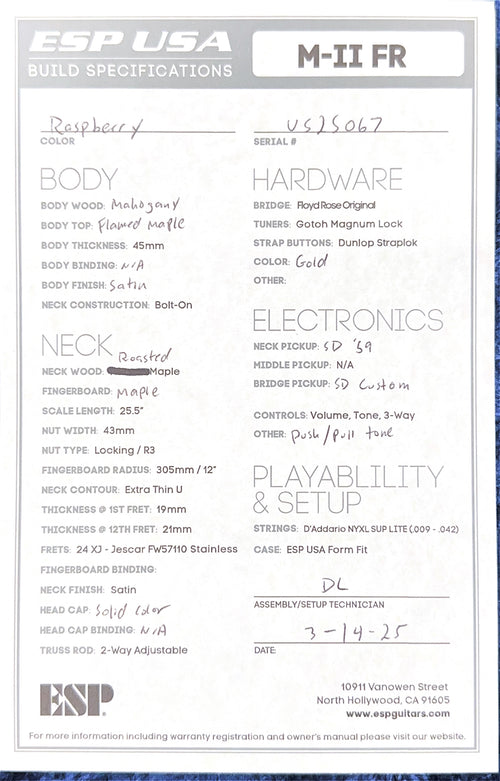 ESP USA
BUILD SPECIFICATIONS
M-II FR
Raspberry
COLOR
US25067
SERIAL #
BODY
BODY WOOD: Mahogany
BODY TOP: Flamed Maple
BODY THICKNESS: 45mm
BODY BINDING: N/A
BODY FINISH: Satin
NECK CONSTRUCTION: Bolt-On
NECK
Roasted
NECK WOOD: Maple
FINGERBOARD: Maple
SCALE LENGTH: 25.5"
NUT WIDTH: 43mm
NUT TYPE: Locking / R3
FINGERBOARD RADIUS: 305mm / 12"
NECK CONTOUR: Extra Thin U
THICKNESS @ 1ST FRET: 19mm
THICKNESS @ 12TH FRET: 21mm
FRETS: 24 XJ - Jescar FW57110 Stainless
FINGERBOARD BINDING:
NECK FINISH: Satin
HEAD CAP: Solid Color
HEAD CAP BINDING: N/A
TRUSS ROD: 2-Way Adjustable
HARDWARE
BRIDGE: Floyd Rose Original
TUNERS: Gotoh Magnum Lock
STRAP BUTTONS: Dunlop Straplok
COLOR: Gold
OTHER:
ELECTRONICS
NECK PICKUP: SD '59
MIDDLE PICKUP: N/A
BRIDGE PICKUP: SD Custom
CONTROLS: Volume, Tone, 3-Way
OTHER: Push/Pull tone
PLAYABLILITY
& SETUP
STRINGS: D'Addario NYXL SUP LITE (.009 - .042)
CASE: ESP USA Form Fit
DL
ASSEMBLY/SETUP TECHNICIAN
3-14-25
DATE:
ESP
10911 Vanowen Street
North Hollywood, CA 91605
www.espguitars.com
For more information including warranty registration and owner's manual please visit our website.